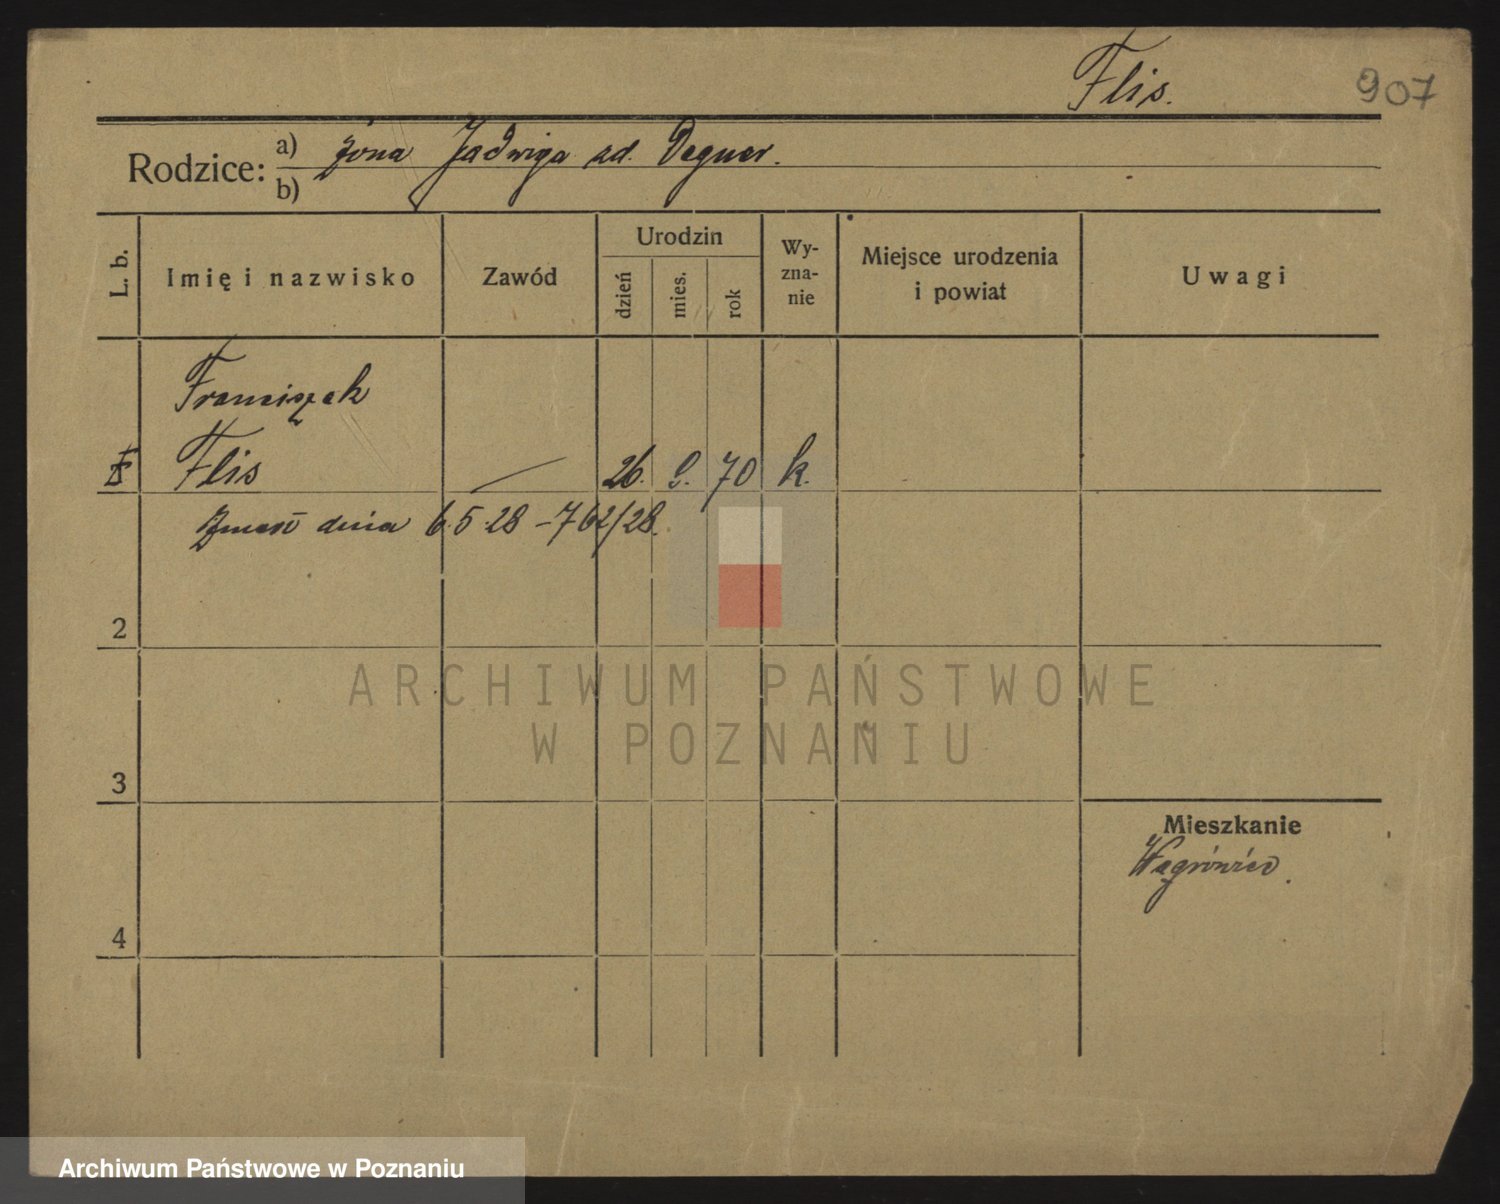 Flis.
907
Rodzice: a) żona Jadwiga zd. Degner.
b)
L. b.
Imię i nazwisko
Zawód
Urodzin
dzień
mies.
rok
Wy-
zna-
nie
Miejsce urodzenia
i powiat
Uwagi
Franciszek
Flis 26. 9. 70 k.
Zmarł dnia 6.5.28 - 762/28.
2
3
4
Mieszkanie
Wągrówiec.
ARCHIWUM PAŃSTWOWE
W POZNANIU
Archiwum Państwowe w Poznaniu